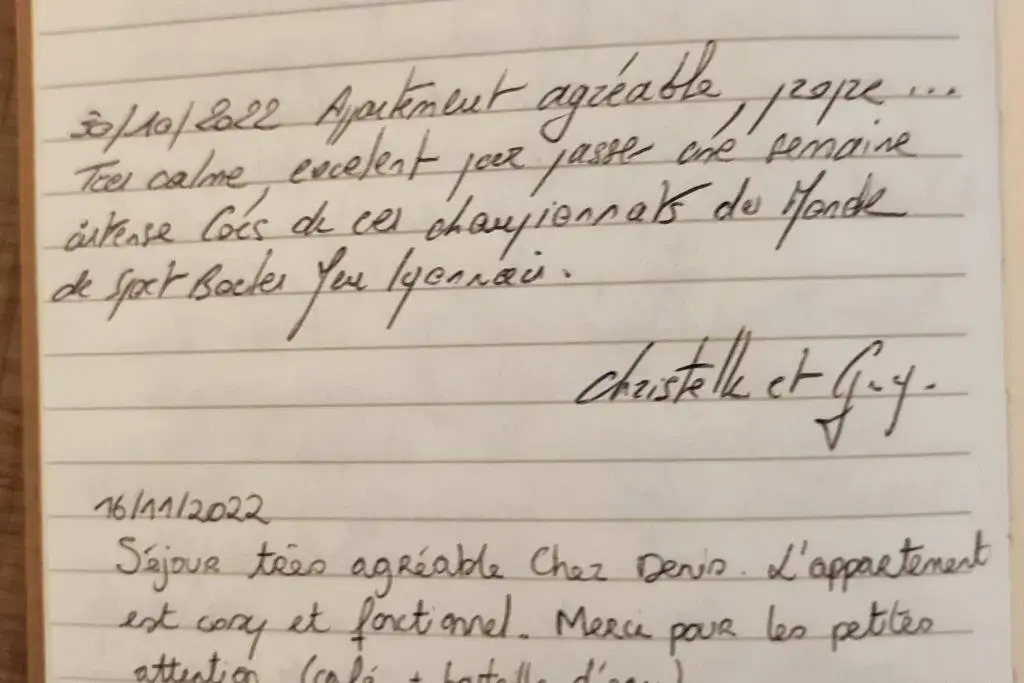 30/10/2022 Apartement agréable, propre ...
Tres calme, excelent pour passer une semaine
intense lors de ces championnats du Monde
de Sport Boules Jeu lyonnais.
Christelle et Guy.
16/11/2022
Séjour très agréable Chez Denis. L'appartement
est cosy et fonctionnel. Merci pour les petites
attention (café + bouteille d'eau)